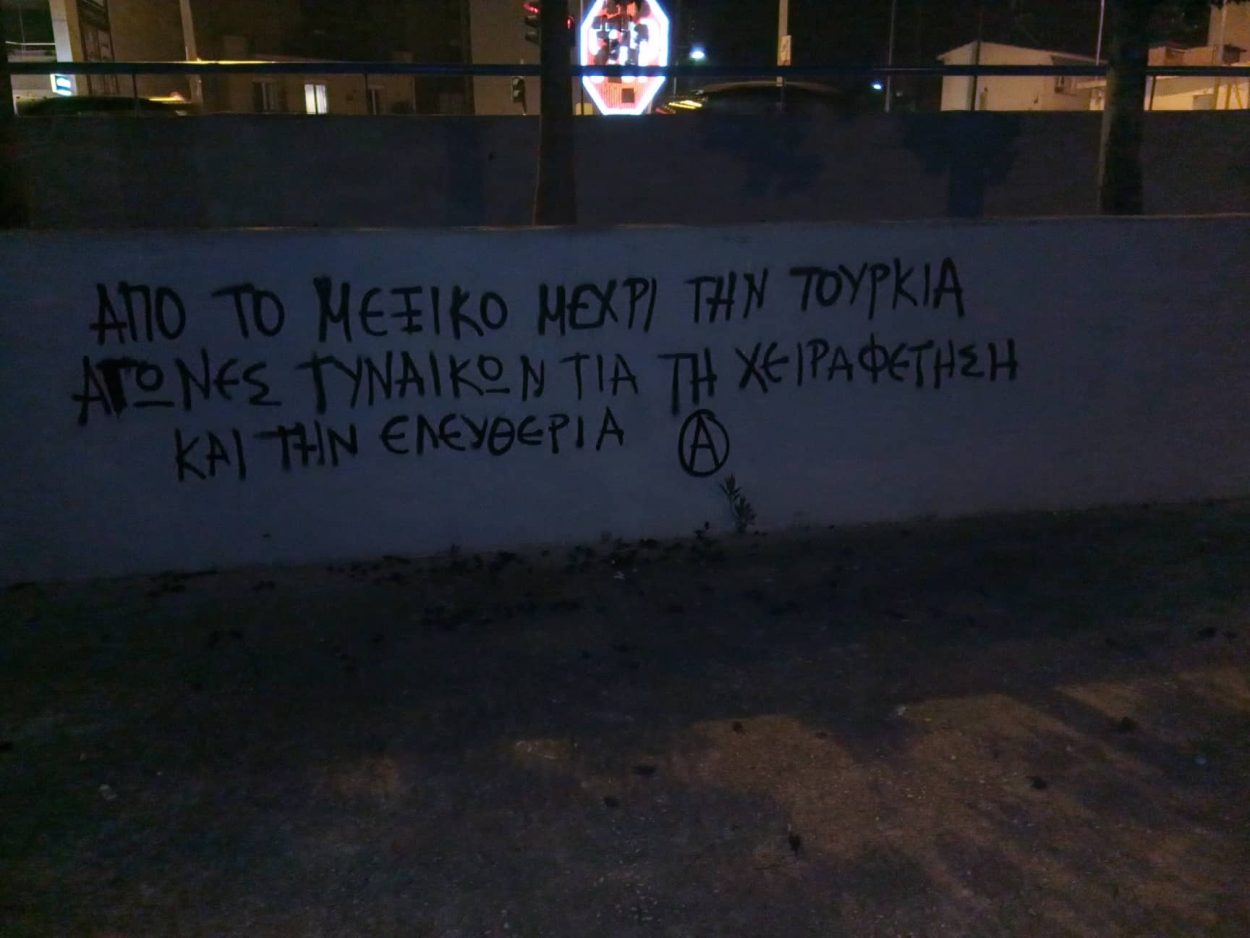 ΑΠΟ ΤΟ ΜΕΞΙΚΟ ΜΕΧΡΙ ΤΗΝ ΤΟΥΡΚΙΑ
ΑΓΩΝΕΣ ΓΥΝΑΙΚΩΝ ΓΙΑ ΤΗ ΧΕΙΡΑΦΕΤΗΣΗ
ΚΑΙ ΤΗΝ ΕΛΕΥΘΕΡΙΑ Ⓐ